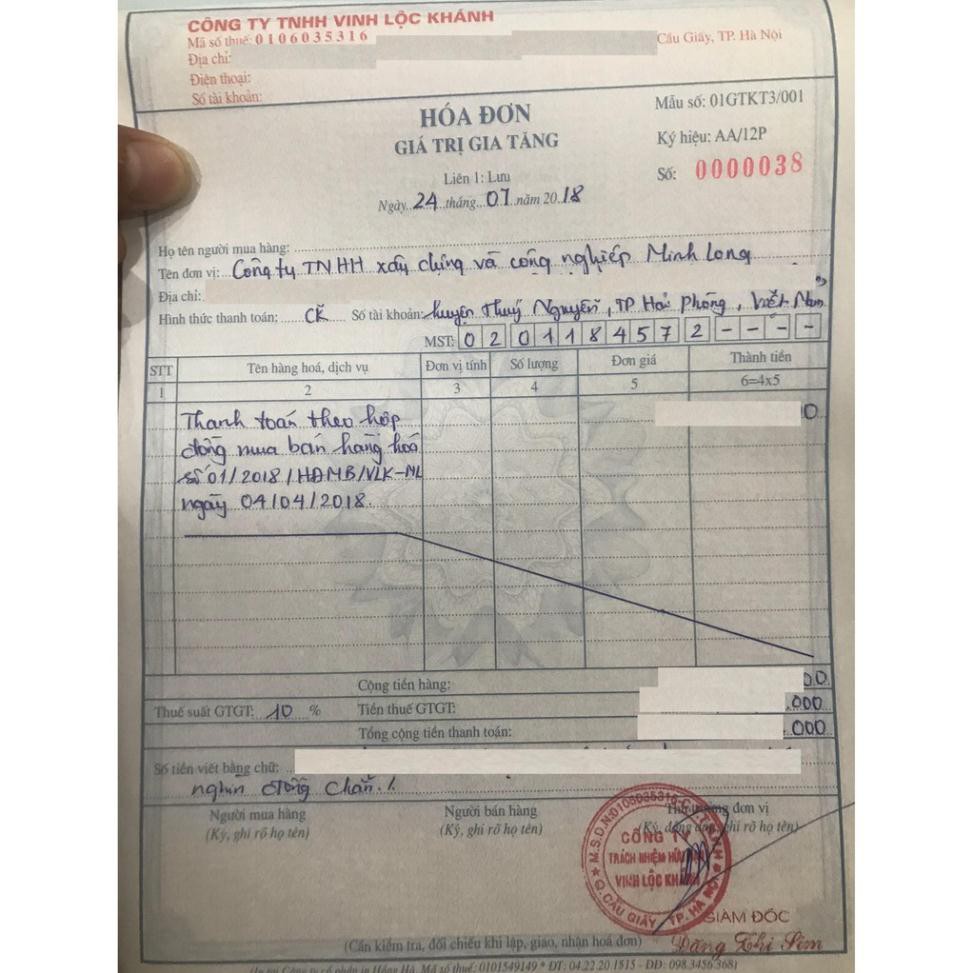 CÔNG TY TNHH VINH LỘC KHÁNH
Mã số thuế: 0106035316
Địa chỉ: Cầu Giấy, TP. Hà Nội
Điện thoại:
Số tài khoản:
HÓA ĐƠN
GIÁ TRỊ GIA TĂNG
Liên 1: Lưu
Ngày 24 tháng 07 năm 2018
Mẫu số: 01GTKT3/001
Ký hiệu: AA/12P
Số: 0000038
Họ tên người mua hàng:
Tên đơn vị: Công ty TNHH xây dựng và công nghiệp Minh Long
Địa chỉ:
Hình thức thanh toán: CK Số tài khoản: huyện Thuỷ Nguyên, TP Hải Phòng, Việt Nam
MST: 0 2 0 1 1 8 4 5 7 2 - - - -
STT Tên hàng hoá, dịch vụ Đơn vị tính Số lượng Đơn giá Thành tiền
1 2 3 4 5 6=4x5
Thanh toán theo hợp 0
đồng mua bán hàng hoá
số 01/2018/HĐMB/VLK-ML
ngày 04/04/2018.
Cộng tiền hàng: 00
Thuế suất GTGT: 10 % Tiền thuế GTGT: .000
Tổng cộng tiền thanh toán: .000
Số tiền viết bằng chữ:
nghìn đồng chẵn./.
Người mua hàng Người bán hàng Thủ trưởng đơn vị
(Ký, ghi rõ họ tên) (Ký, ghi rõ họ tên) (Ký, đóng dấu, ghi rõ họ tên)
M.S.D.N:0106035316-C.T.T.N.H.H
CÔNG TY
TRÁCH NHIỆM HỮU HẠN
VINH LỘC KHÁNH
Q. CẦU GIẤY - TP. HÀ NỘI
GIÁM ĐỐC
Đặng Thị Sim
(Cần kiểm tra, đối chiếu khi lập, giao, nhận hoá đơn)
(In tại Công ty cổ phần in Hồng Hà, Mã số thuế: 0101549149 * ĐT: 04.22.20.1515 - DĐ: 098.3456.368)